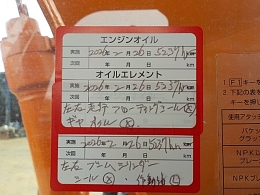 エンジンオイル
実施 2026年2月26日 5237hr km
次回 年 月 日 km
オイルエレメント
実施 2026年2月26日 5237hr km
次回 年 月 日 km
左右走行フローティングシール(X)
ギヤオイル(X)
実施 2026年2月26日 5237hr km
次回 年 月 日 km
左右ブームシリンダー
シール(X) 作動油
1.
キー
2. 下記の表を
キーを押し
使用アタッ
バケッ
グラッ
NPKO
ブレー
NPKO